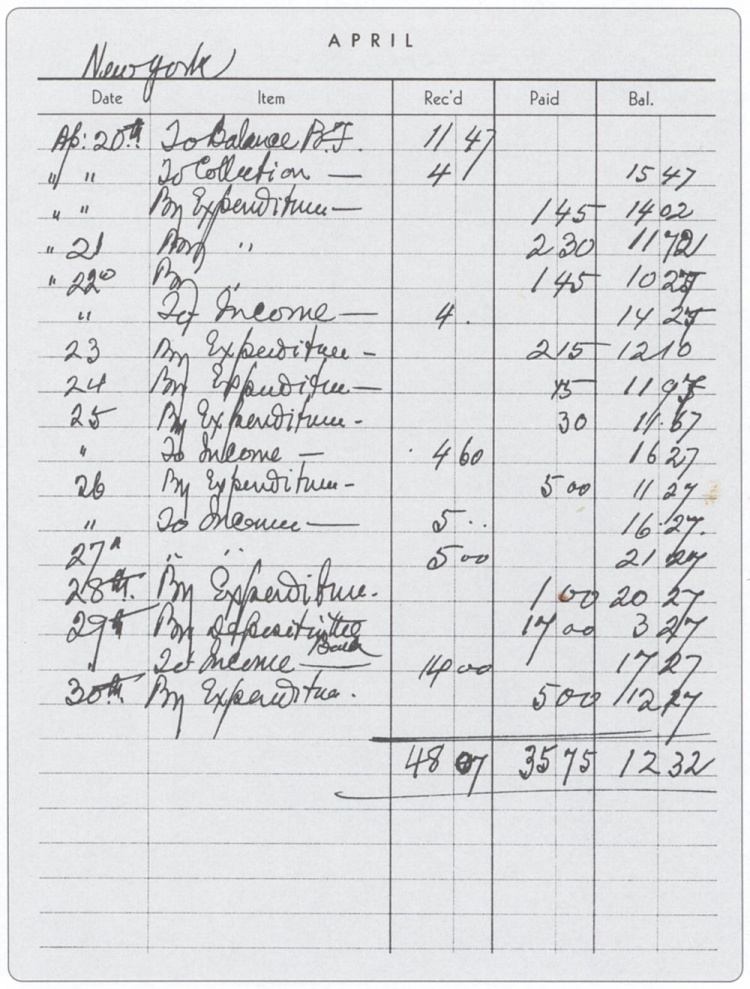 APRIL
New York
Date Item Rec'd Paid Bal.
Ap: 20th To Balance B.F. 11 47
" " To Collection — 4 15 47
" " By Expenditure — 1 45 14 02
" 21 By " 2 30 11 72
" 22 By 1 45 10 27
" To Income — 4. 14 27
23 By Expenditure - 2 15 12 10
24 By Expenditure — 15 11 97
25 By Expenditure - 30 11.67
" To Income — 4 60 16 27
26 By Expenditure - 5 00 11 27
" To Income — 5.. 16.27.
27 " " 5 00 21 27
28th. By Expenditure. 1 00 20 27
29th By deposit in the Bank 17 00 3 27
" To Income — 14 00 17 27
30th By Expenditure. 5 00 12 27
48 07 35 75 12 32